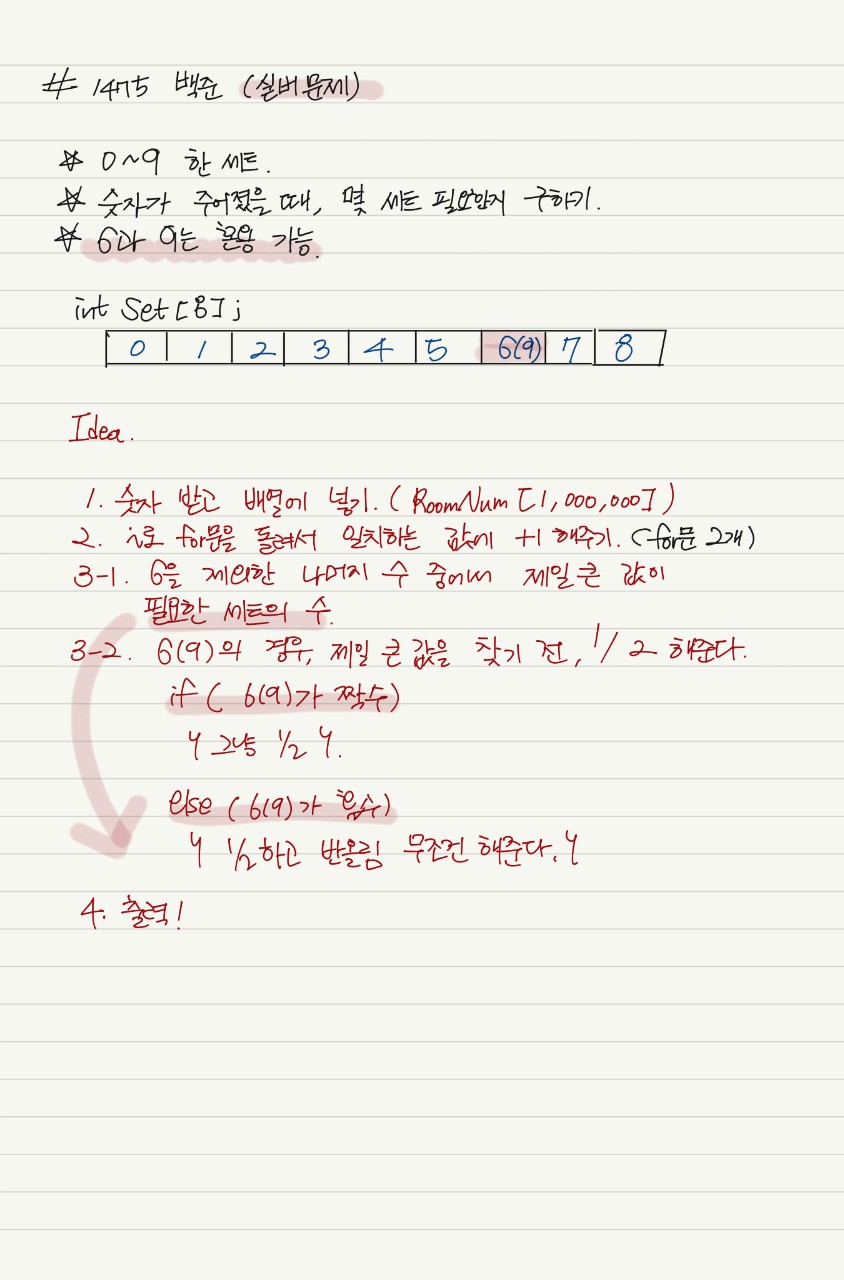 # 1475 백준 (실버문제)
☆ 0~9 한 세트.
☆ 숫자가 주어졌을 때, 몇 세트 필요한지 구하기.
☆ 6과 9는 혼용 가능.
int Set[8];
0 1 2 3 4 5 6(9) 7 8
Idea.
1. 숫자 받고 배열에 넣기. (RoomNum [1,000,000])
2. i로 for문을 돌려서 일치하는 값에 +1 해주기. (for문 2개)
3-1. 6을 제외한 나머지 수 중에서 제일 큰 값이
필요한 세트의 수.
3-2. 6(9)의 경우, 제일 큰 값을 찾기 전, 1/2 해준다.
if ( 6(9)가 짝수)
{ 그냥 1/2 }.
else ( 6(9)가 홀수)
{ 1/2하고 반올림 무조건 해준다. }
4. 출력!